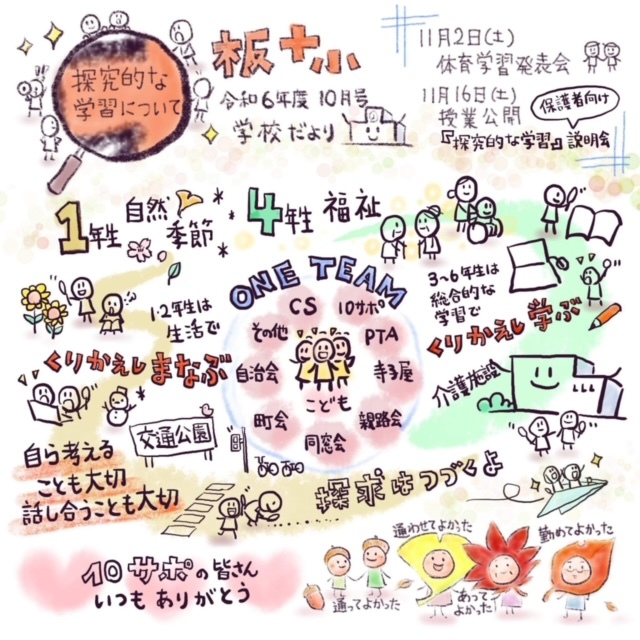 探究的な
学習について
板十小
令和6年度 10月号
学校だより
11月2日(土)
体育学習発表会
11月16日(土)
授業公開
保護者向け
『探究的な学習』説明会
1年生
自然
季節
4年生
福祉
1・2年生は
生活で
くりかえしまなぶ
ONE TEAM
CS
10サポ
その他
PTA
自治会
寺子屋
こども
町会
親路会
同窓会
3~6年生は
総合的な
学習で
くりかえし学ぶ
介護施設
交通公園
自ら考える
ことも大切
話し合うことも大切
探求はつづくよ
10サポの皆さん
いつもありがとう
通ってよかった
通わせてよかった
あって
よかった
勤めてよかった